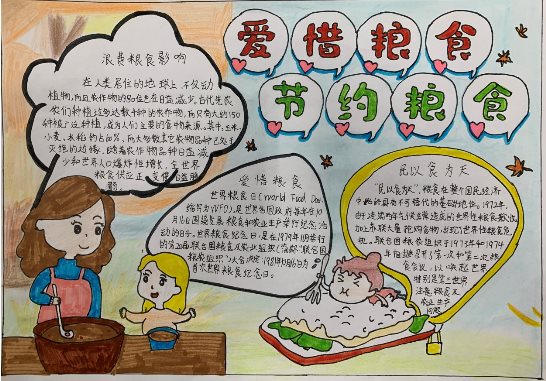 爱惜粮食
节约粮食
浪费粮食影响
在人类居住的地球上,不仅动
植物,而且农作物的品种也在日益减少。古代先民
小麦、水稻约占60%,而大多数其它农作物品种已处于
灭绝的边缘。随着农作物品种日益减
少和世界人口爆炸性增长,全世界
粮食供应正
爱惜粮食
世界粮食日(World Food Day
缩写为WFD),是世界各国政府每年在10
月16日围绕发展粮食和农业生产举行纪念活
动的日子。世界粮食纪念日,是在1979年11月举行
的第20届联合国粮食及农业组织(简称"联合国
粮农组织")大会决定:1981年10月16日为
首次世界粮食纪念日。
民以食为天
"民以食为天",粮食在整个国民经济
中始终具有不可替代的基础地位。1972年,
由于连续两年气候异常造成的世界性粮食歉收,
加上苏联大量抢购谷物,出现了世界性粮食危
机。联合国粮农组织于1973年和1974
年相继召开了第一次和第二次粮
食会议,以唤起世界,
特别是第三世界
注意粮食及
农业生产
问题